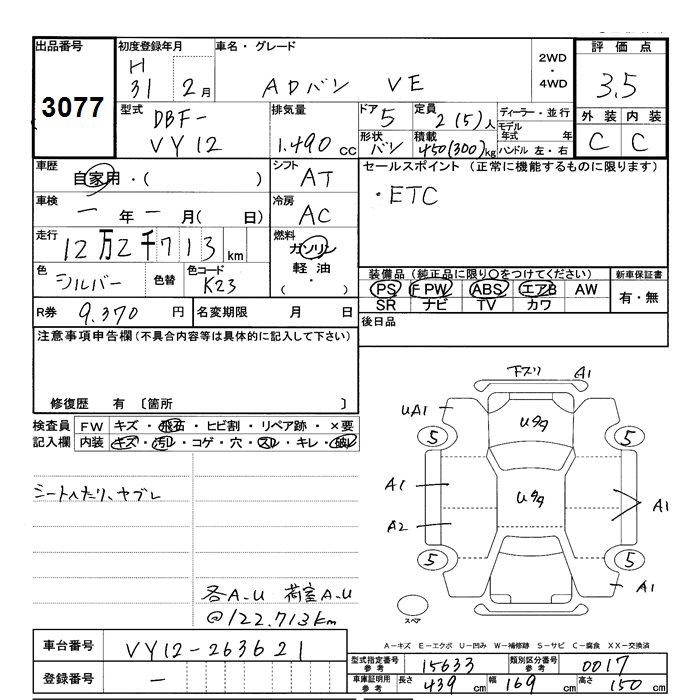 出品番号 初度登録年月 車名・グレード 評価点
3077
H 31 2月 ADバン VE 2WD・4WD 3.5
外装 内装
C C
型式 DBF-VY12 排気量 1.490 cc ドア 5 定員 2(5)人 ディーラー・並行
形状 バン 積載 450(300)kg モデル年式 年
ハンドル 左・右
車歴 自家用・( ) シフト AT セールスポイント (正常に機能するものに限ります)
・ETC
車検 一年一月( 日) 冷房 AC
走行 12万2千713km 燃料 ガソリン
軽油
( ・ )
色 シルバー 色替 色コード K23
装備品(純正品に限り○をつけてください) 新車保証書
PS PW ABS エアB AW 有・無
SR ナビ TV カワ
R券 9.370円 名変期限 月 日 後日品
注意事項申告欄(不具合内容等は具体的に記入して下さい)
修復歴 有 〔箇所 〕
検査員 FW キズ・飛石・ヒビ割・リペア跡・×要
記入欄 内装 キズ・汚レ・コゲ・穴・スレ・キレ・破レ
シートヘたり、ヤブレ
各A.U 荷室A.U
@122.713km
下スリ A1
UA1
5 5
Uタタ
A1
Uタタ
A1
A2
5 5
A1
スペア
A-キズ E-エクボ U-凹み W-補修跡 S-サビ C-腐食 XX-交換済
車台番号 VY12-263621
登録番号 -
型式指定番号 参考 15633 類別区分番号 参考 0017
車庫証明用 参考 長さ 439cm 幅 169cm 高さ 150cm